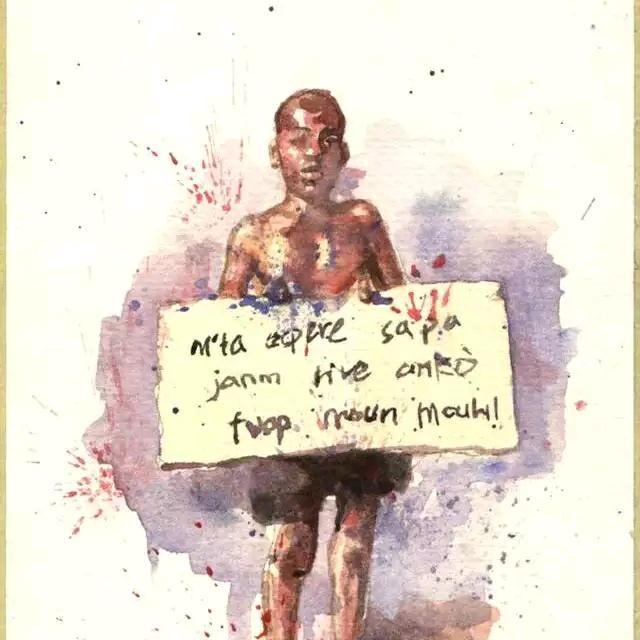 M'ta espere sa pa
janm rive ankò
twop moun mouri!